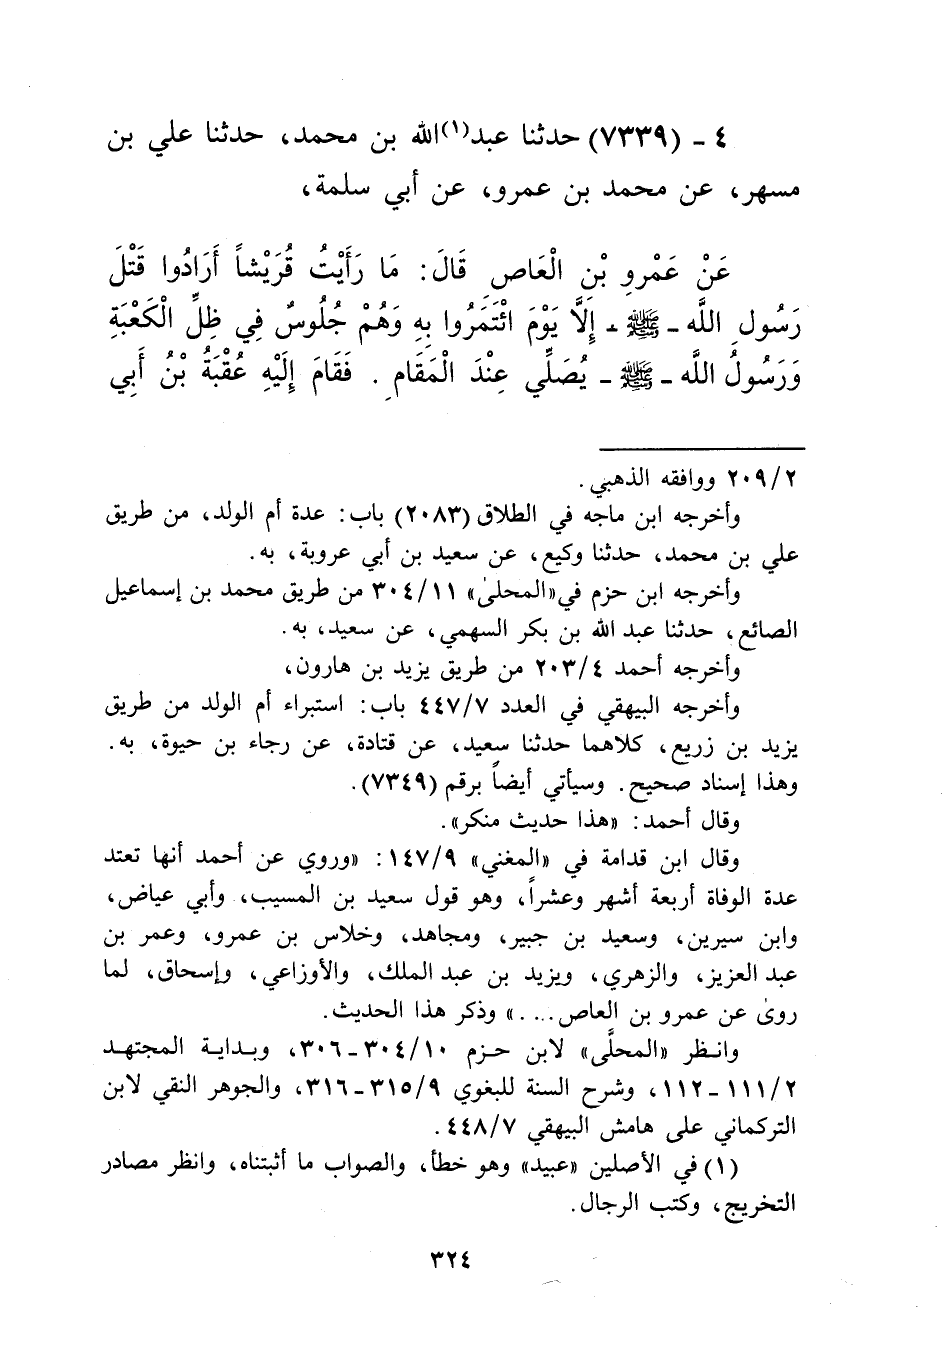 ٤ - (٧٣٣٩) حدثنا عبد(١)الله بن محمد، حدثنا علي بن
مسهر، عن محمد بن عمرو، عن أبي سلمة،
عَنْ عَمْرِو بْنِ الْعَاصِ قَالَ: مَا رَأَيْتُ قُرَيْشاً أَرَادُوا قَتْلَ
رَسُولِ اللَّه - ﷺ - إِلَّا يَوْمَ ائْتَمَرُوا بِهِ وَهُمْ جُلُوسٌ فِي ظِلِّ الْكَعْبَةِ
وَرَسُولُ اللَّه - ﷺ - يُصَلِّي عِنْدَ الْمَقَامِ . فَقَامَ إِلَيْهِ عُقْبَةُ بْنُ أَبِي
٢٠٩/٢ ووافقه الذهبي.
وأخرجه ابن ماجه في الطلاق (٢٠٨٣) باب: عدة أم الولد، من طريق
علي بن محمد، حدثنا وكيع، عن سعيد بن أبي عروبة، به.
وأخرجه ابن حزم في«المحلىٰ» ٣٠٤/١١ من طريق محمد بن إسماعيل
الصائع، حدثنا عبد الله بن بكر السهمي، عن سعيد، به.
وأخرجه أحمد ٢٠٣/٤ من طريق يزيد بن هارون،
وأخرجه البيهقي في العدد ٤٤٧/٧ باب: استبراء أم الولد من طريق
يزيد بن زريع، كلاهما حدثنا سعيد، عن قتادة، عن رجاء بن حيوة، به.
وهذا إسناد صحيح. وسيأتي أيضاً برقم (٧٣٤٩).
وقال أحمد: «هذا حديث منكر».
وقال ابن قدامة في «المغني» ١٤٧/٩: «وروي عن أحمد أنها تعتد
عدة الوفاة أربعة أشهر وعشراً، وهو قول سعيد بن المسيب، وأبي عياض،
وابن سيرين، وسعيد بن جبير، ومجاهد، وخلاس بن عمرو، وعمر بن
عبد العزيز، والزهري، ويزيد بن عبد الملك، والأوزاعي، وإسحاق، لما
روىٰ عن عمرو بن العاص....» وذكر هذا الحديث.
وانظر «المحلَّى» لابن حزم ٣٠٤/١٠-٣٠٦، وبداية المجتهد
١١١/٢-١١٢، وشرح السنة للبغوي ٣١٥/٩-٣١٦، والجوهر النقي لابن
التركماني على هامش البيهقي ٤٤٨/٧.
(١) في الأصلين «عبيد» وهو خطأ، والصواب ما أثبتناه، وانظر مصادر
التخريج، وكتب الرجال.
٣٢٤